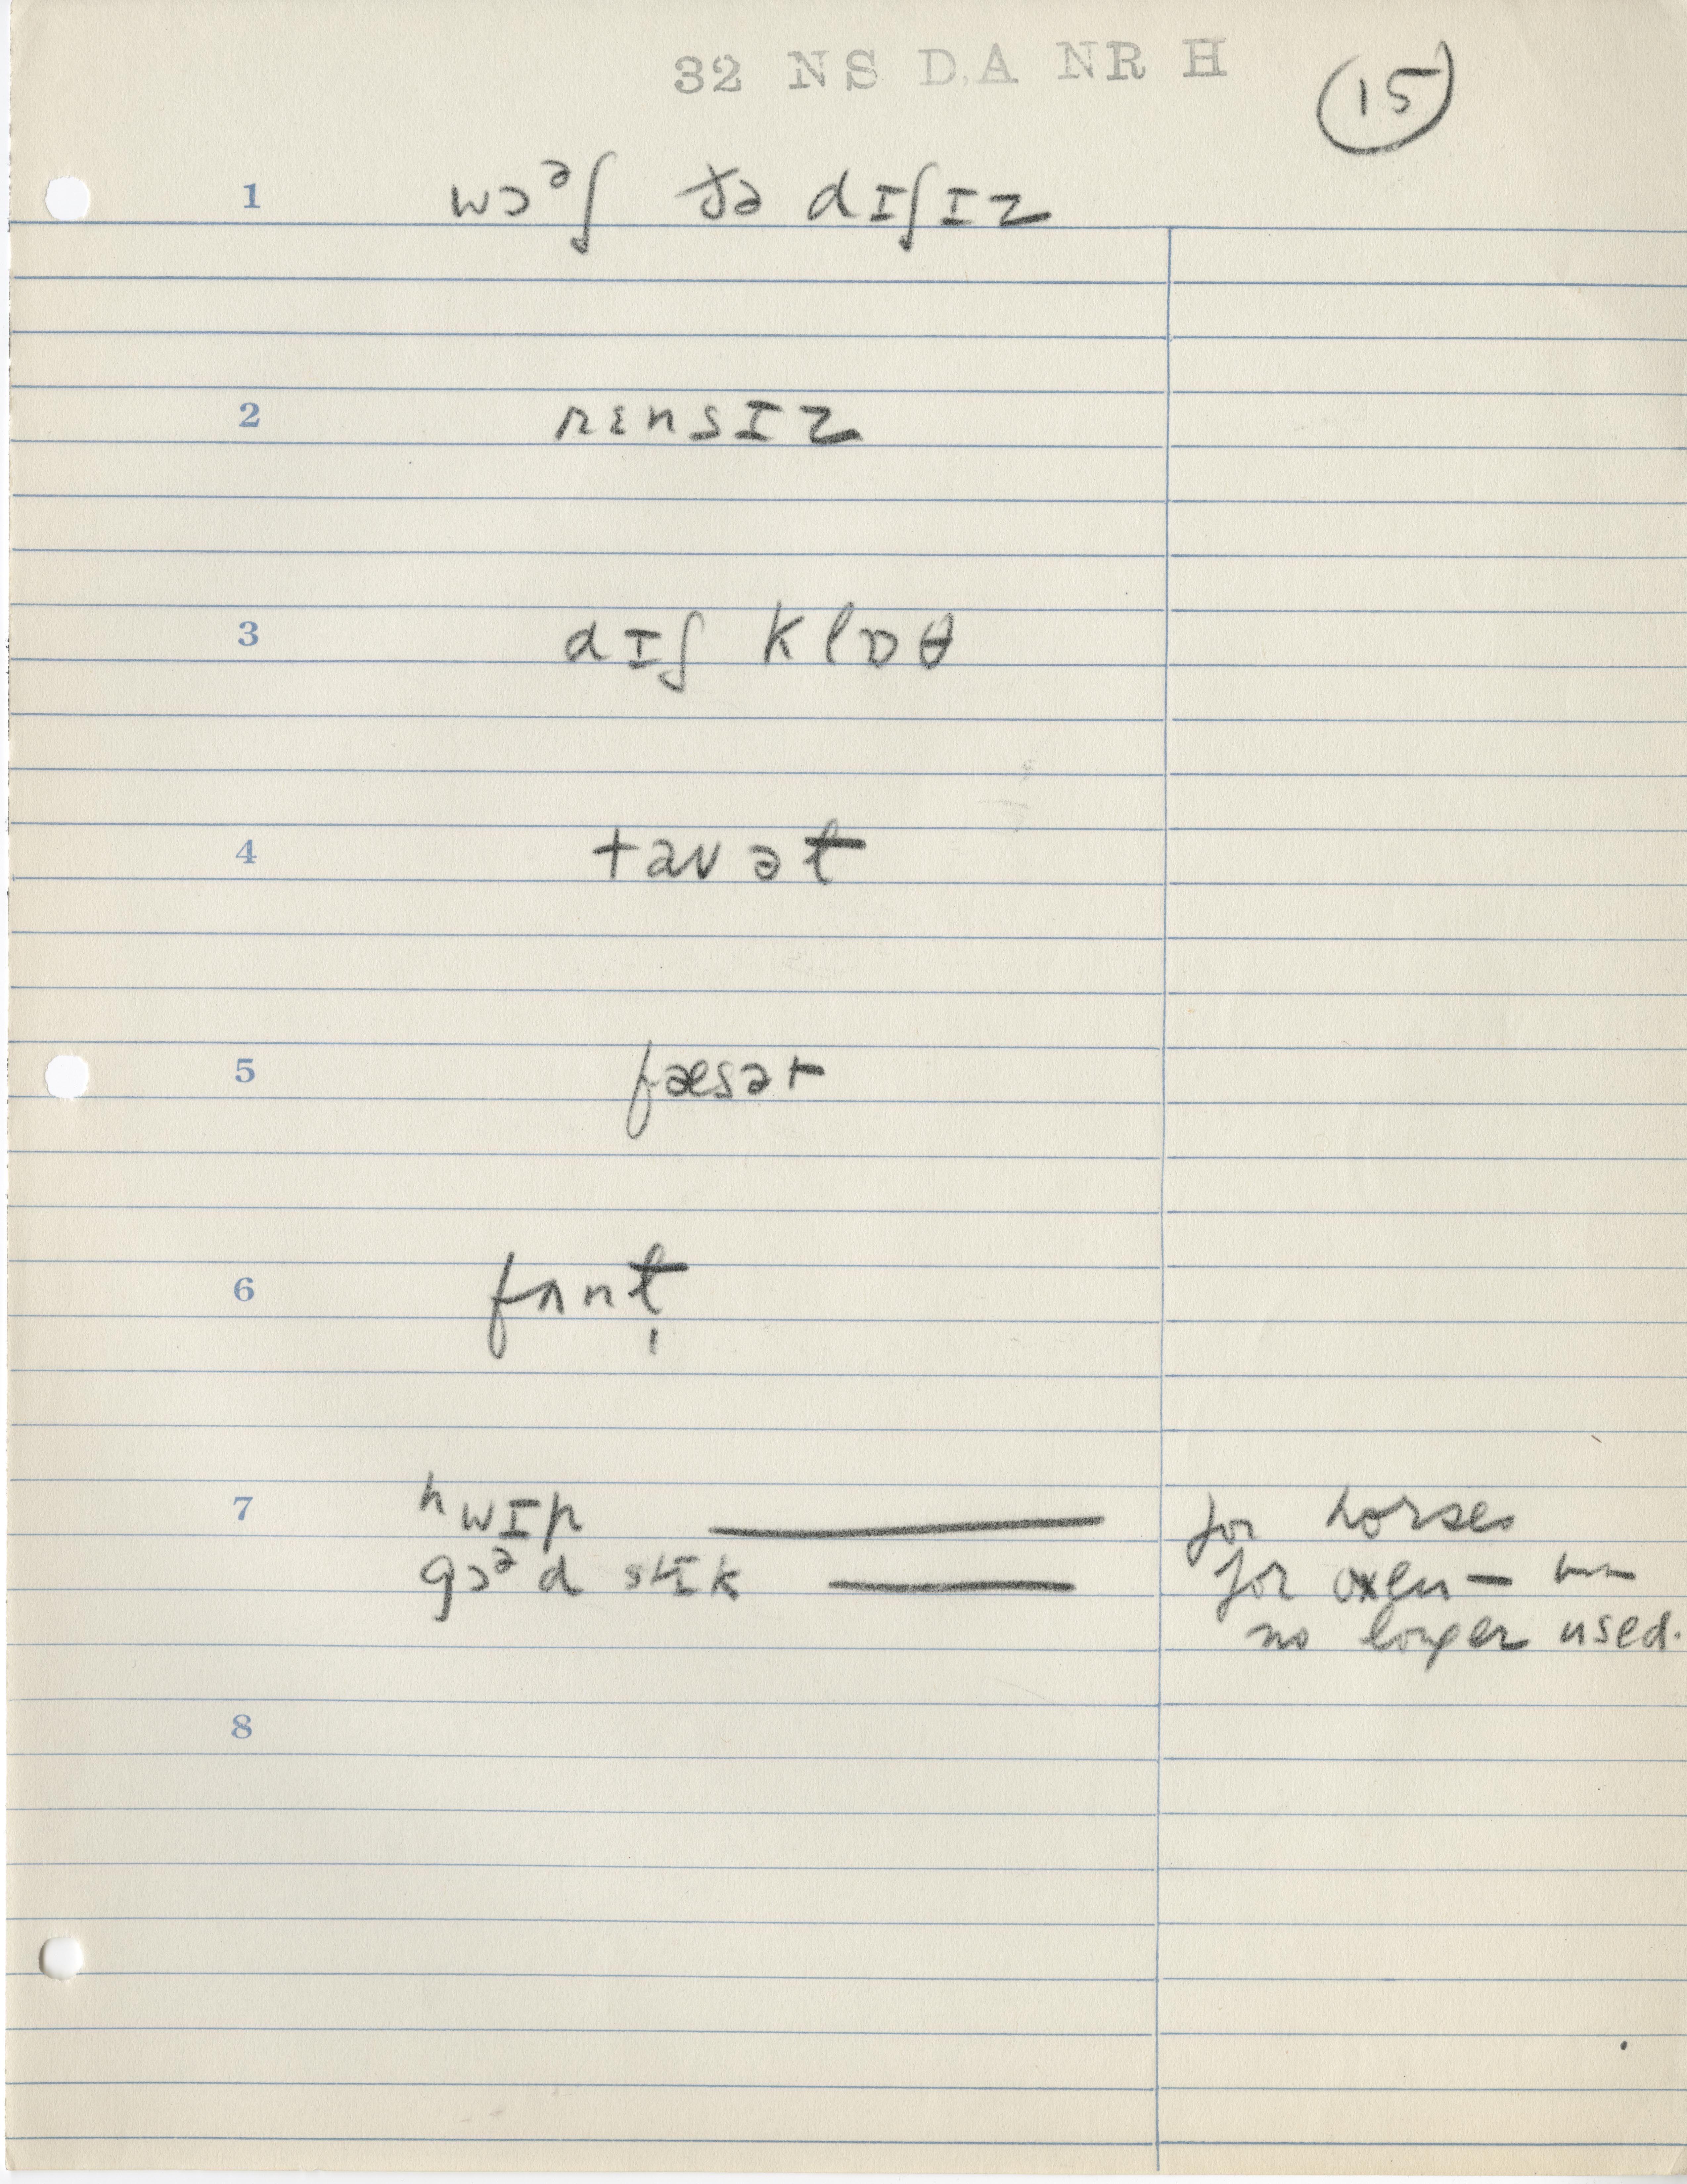 32 NS D.A NR H
15
1 wɔᵊʃ ðə dɪʃɪz
2 rɛnsɪz
3 dɪʃ klɒθ
4 tavət
5 fæsət
6 fʌnt̬
7 ʰwɪp — for horses
gɔᵊd stɪk — for oxen —
no longer used.
8